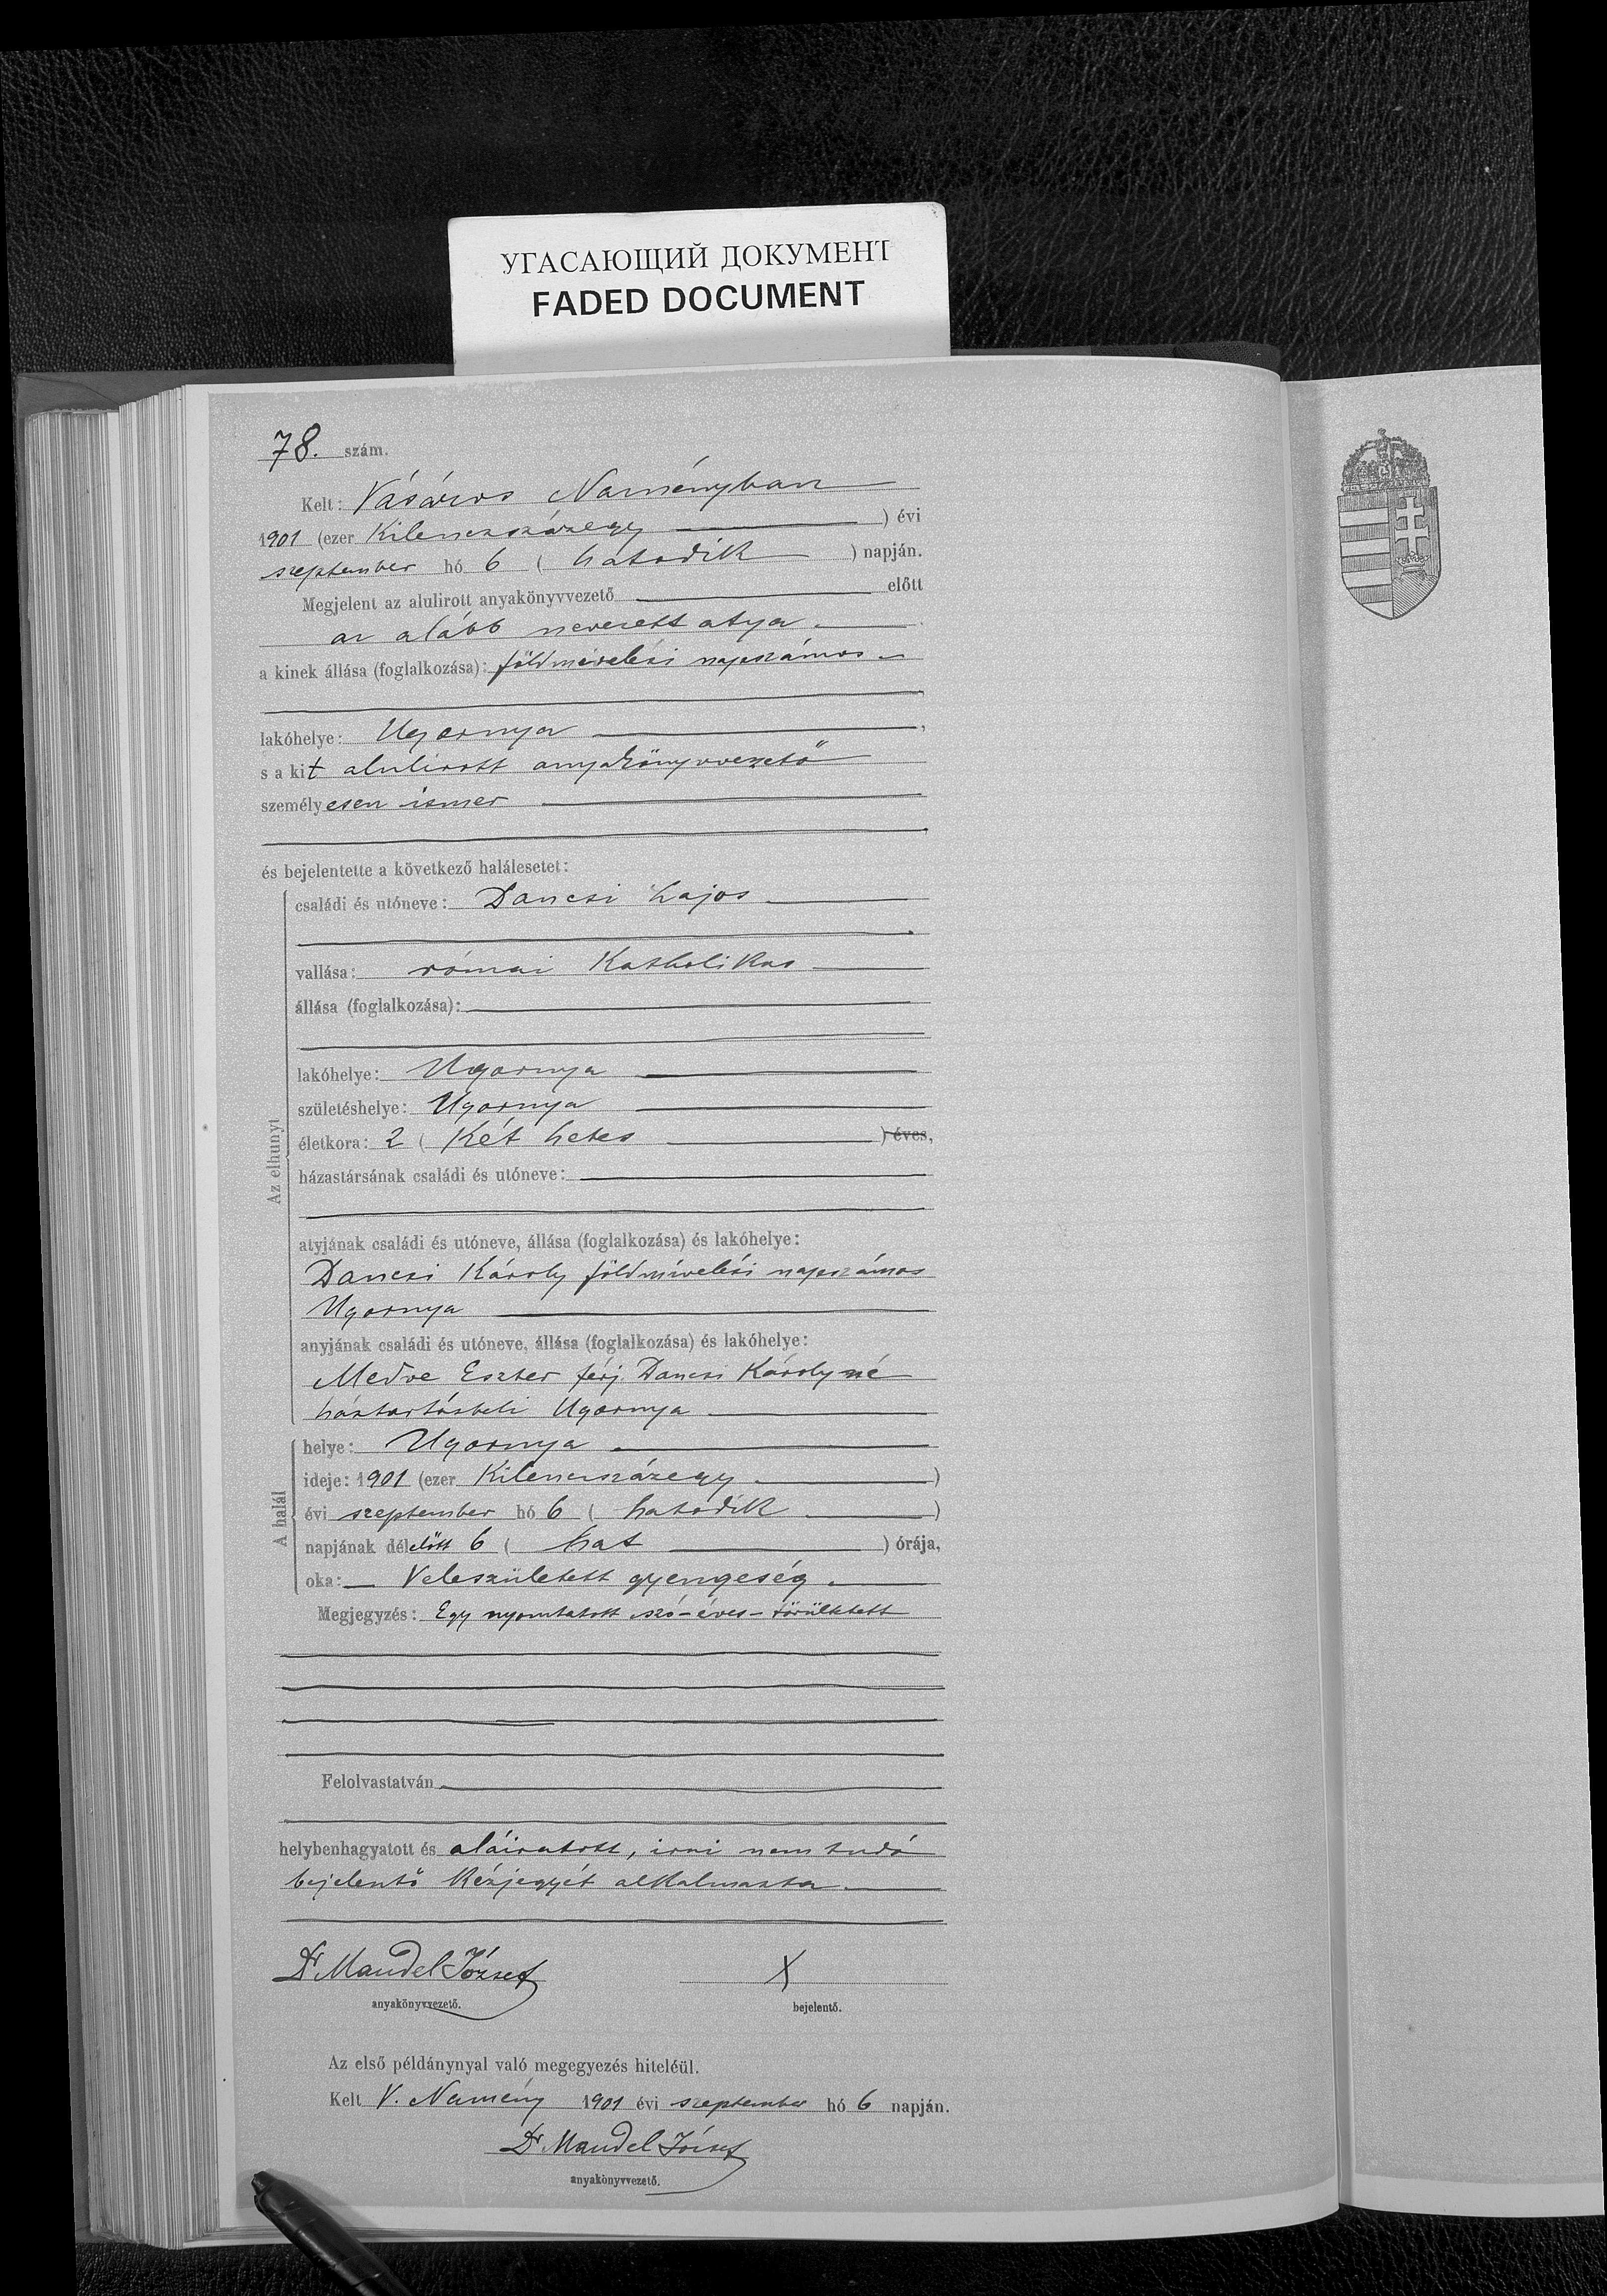 УГАСАЮЩИЙ ДОКУМЕНТ
FADED DOCUMENT
78. szám.
Kelt: Vásáros Naményban
1901 (ezer Kilenczszázegy ) évi
szeptember hó 6 ( hatodik ) napján.
Megjelent az alulirott anyakönyvvezető előtt
az alább nevezett atya
a kinek állása (foglalkozása): földmívelési napszámos
lakóhelye: Ugornya ,
s a kit alulirott anyakönyvvezető
személyesen ismer
és bejelentette a következő halálesetet:
Az elhunyt
családi és utóneve: Dancsi Lajos
vallása: római Katholikus
állása (foglalkozása):
lakóhelye: Ugornya
születéshelye: Ugornya
életkora: 2 ( Két hetes ) éves,
házastársának családi és utóneve:
atyjának családi és utóneve, állása (foglalkozása) és lakóhelye:
Dancsi Károly földmívelési napszámos
Ugornya
anyjának családi és utóneve, állása (foglalkozása) és lakóhelye:
Medve Eszter férj. Dancsi Károlyné
háztartásbeli Ugornya
A halál
helye: Ugornya
ideje: 1901 (ezer Kilenczszázegy )
évi szeptember hó 6 ( hatodik )
napjának délelőtt 6 ( hat ) órája,
oka: Veleszületett gyengeség.
Megjegyzés: Egy nyomtatott szó-éves-töröltetett
Felolvastatván
helybenhagyatott és aláiratott, irni nem tudó
bejelentő Kézjegyét alkalmazta
Dr Mandel József X
anyakönyvvezető. bejelentő.
Az első példánynyal való megegyezés hiteléül.
Kelt V. Namény 1901 évi szeptember hó 6 napján.
Dr Mandel József
anyakönyvvezető.